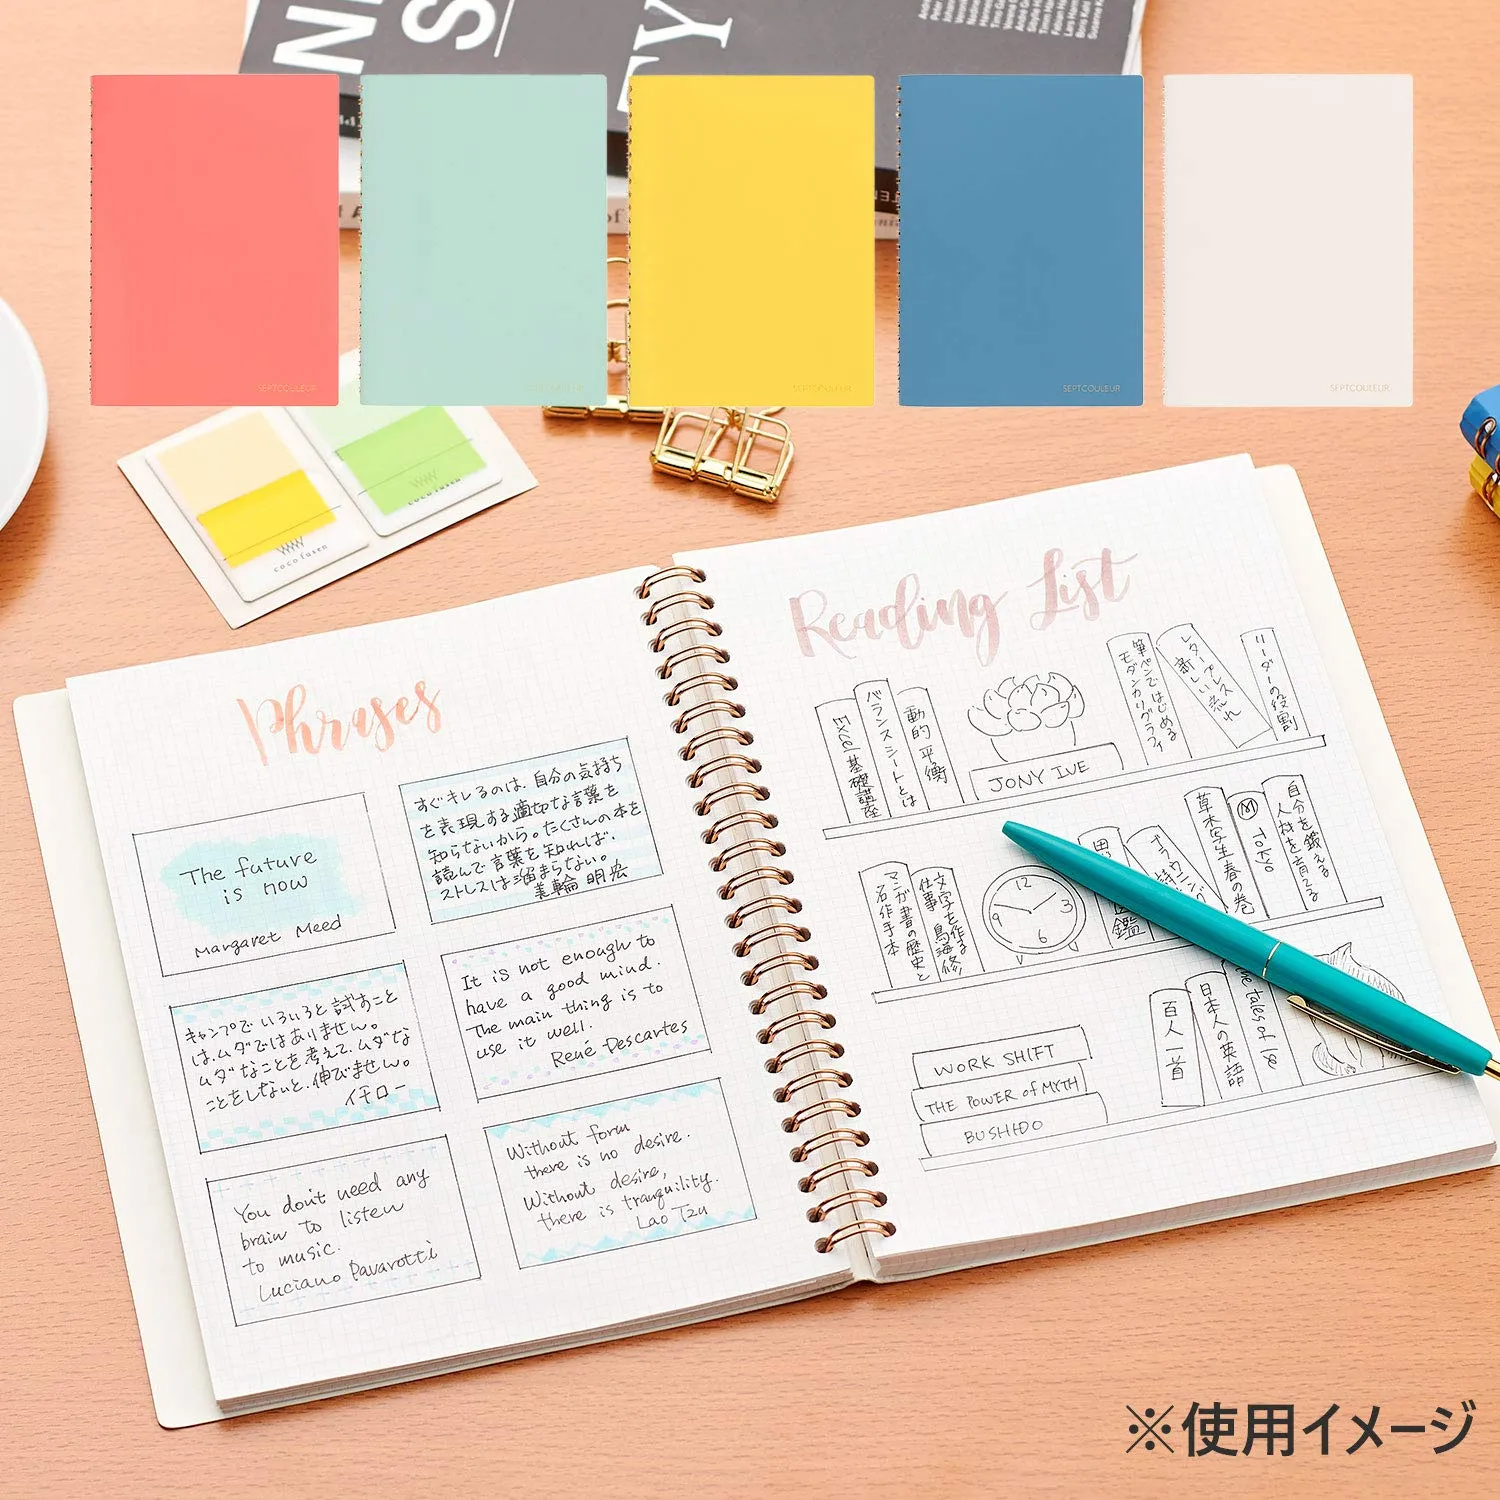 SEPTCOULEUR
SEPTCOULEUR
SEPTCOULEUR
SEPTCOULEUR
SEPTCOULEUR
coco fusen
coco fusen
Phrases
The future
is now
Margaret Meed
すぐキレるのは、自分の気持ち
を表現する適切な言葉を
知らないから。たくさんの本を
読んで言葉を知れば、
ストレスは溜まらない。
美輪明宏
キャンプでいろいろと試すこと
は、ムダではありません。
ムダなことを考えて、ムダな
ことをしないと、伸びません。
イチロー
It is not enough to
have a good mind.
The main thing is to
use it well.
René Descartes
You don't need any
brain to listen
to music.
Luciano Pavarotti
Without form
there is no desire.
Without desire,
there is tranquility.
Lao Tzu
Reading List
Excel基礎講座
バランスシートとは
動的平衡
JONY IVE
筆ペンではじめる
モダンカリグラフィ
レタープレス
新しい流れ
リーダーの役割
マンガ書の歴史と
名作手本
文字を作る
仕事 鳥海修
12
3
6
9
鑑
草木写生春の巻
M TOKYO
自分を鍛える
人材を育てる
WORK SHIFT
THE POWER of MYTH
BUSHIDO
百人一首
日本人の英語
tales of
※使用イメージ